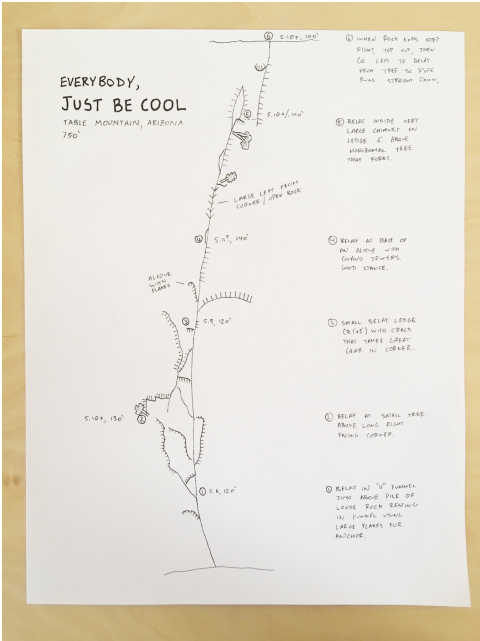 EVERYBODY,
JUST BE COOL
TABLE MOUNTAIN, ARIZONA
750'
⑥ 5.10+, 100'
⑤
5.10+/, 140'
LARGE LEFT FACING
CORNER / OPEN BOOK
④ 5.11+, 140'
ALCOVE
WITH
FLAKES
③ 5.9, 120'
5.10+, 130'
②
① 5.8, 120'
⑥ WHEN ROCK ENDS STEP
RIGHT, TOP OUT, THEN
GO LEFT TO BELAY
FROM TREE SO ROPE
RUNS STRAIGHT DOWN.
⑤ BELAY INSIDE VERY
LARGE CHIMNEY ON
LEDGE 6' ABOVE
HORIZONTAL TREE
THAT FORKS.
④ BELAY AT BASE OF
AN ALCOVE WITH
GUARD TOWERS.
GOOD STANCE.
③ SMALL BELAY LEDGE
WITH CRACK
THAT TAKES GREAT
GEAR IN CORNER.
② BELAY AT SMALL TREE
ABOVE LONG RIGHT
FACING CORNER.
① BELAY IN "V" FUNNEL
JUST ABOVE PILE OF
LOOSE ROCK RESTING
IN FUNNEL USING
LARGE FLAKES FOR
ANCHOR.